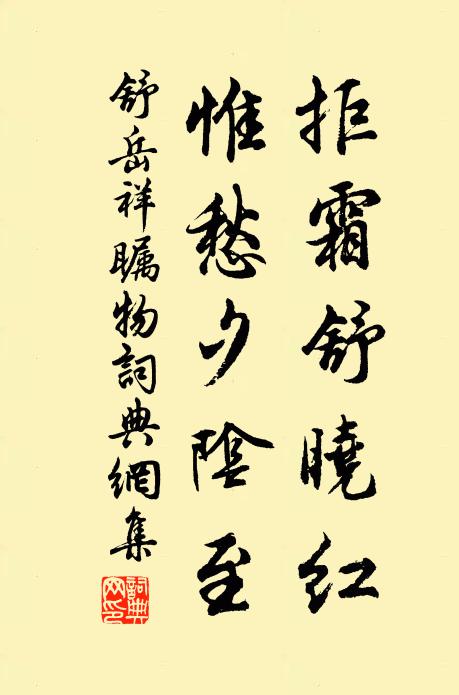 拒霜舒曉紅
惟愁夕陰至
舒岳祥矚物詞典網集
詞典网印